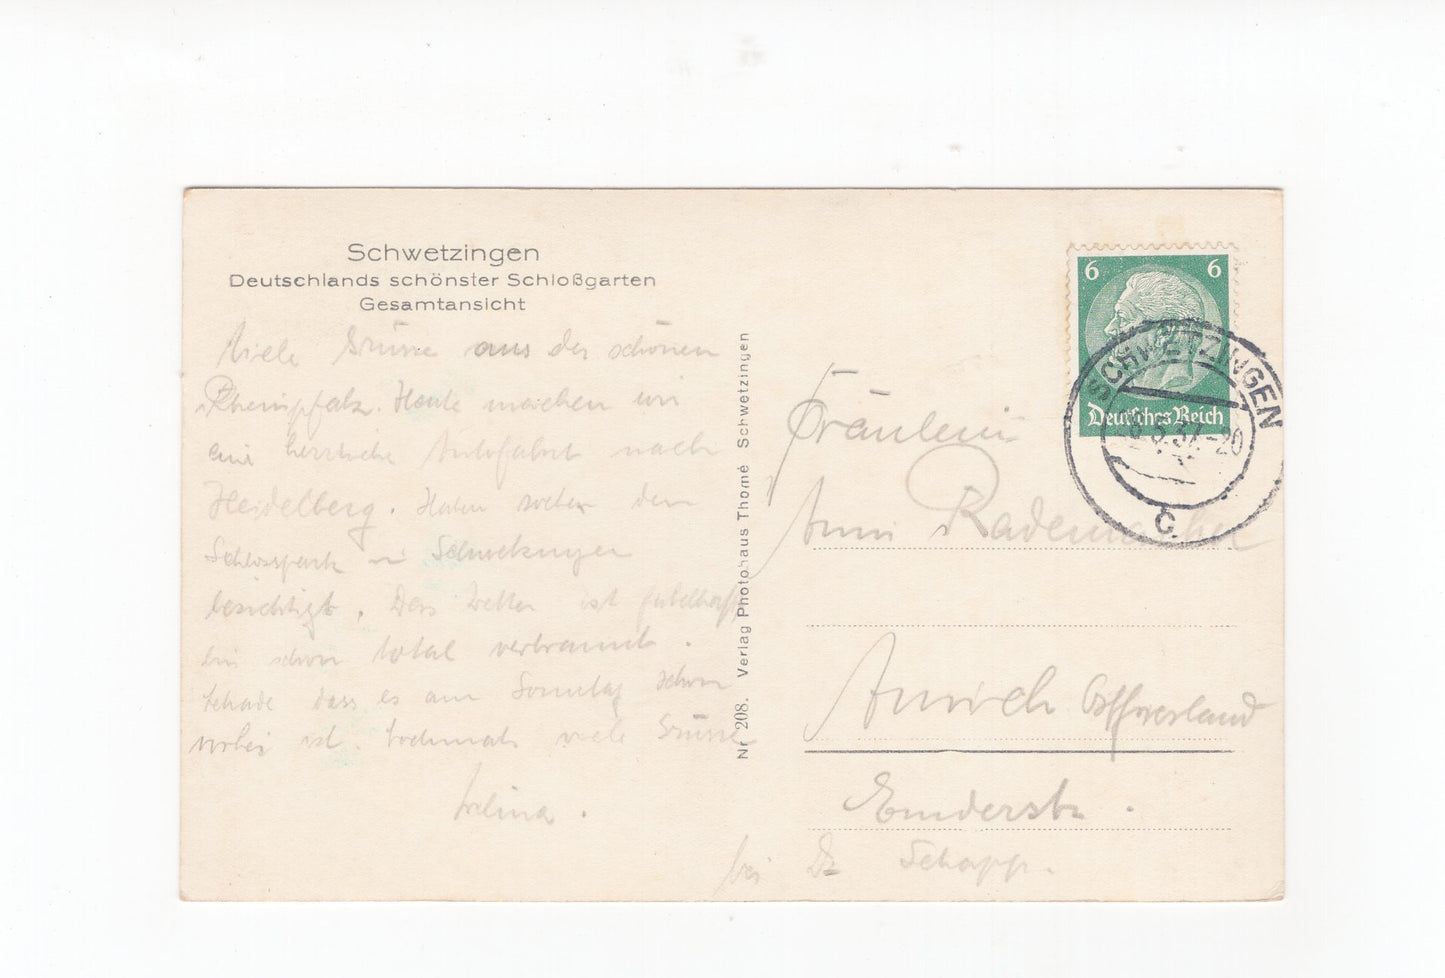 Schwetzingen
Deutschlands schönster Schloßgarten
Gesamtansicht
Viele Grüsse aus der schönen
Rheinpfalz. Heute machen wir
eine herrliche Autofahrt nach
Heidelberg. Haben soeben den
Schlosspark in Schwetzingen
besichtigt. Das Wetter ist fabelhaft
bin schon total verbrannt.
Schade dass es am Sonntag schon
vorbei ist. Nochmals viele Grüsse
Nr. 208. Verlag Photohaus Thomé Schwetzingen
6 6
Deutsches Reich
SCHWETZINGEN
5.37.-20
c
Fräulein
Anni Rademacher
Aurich Ostfriesland
Emderstr.
bei Dr Schapp.